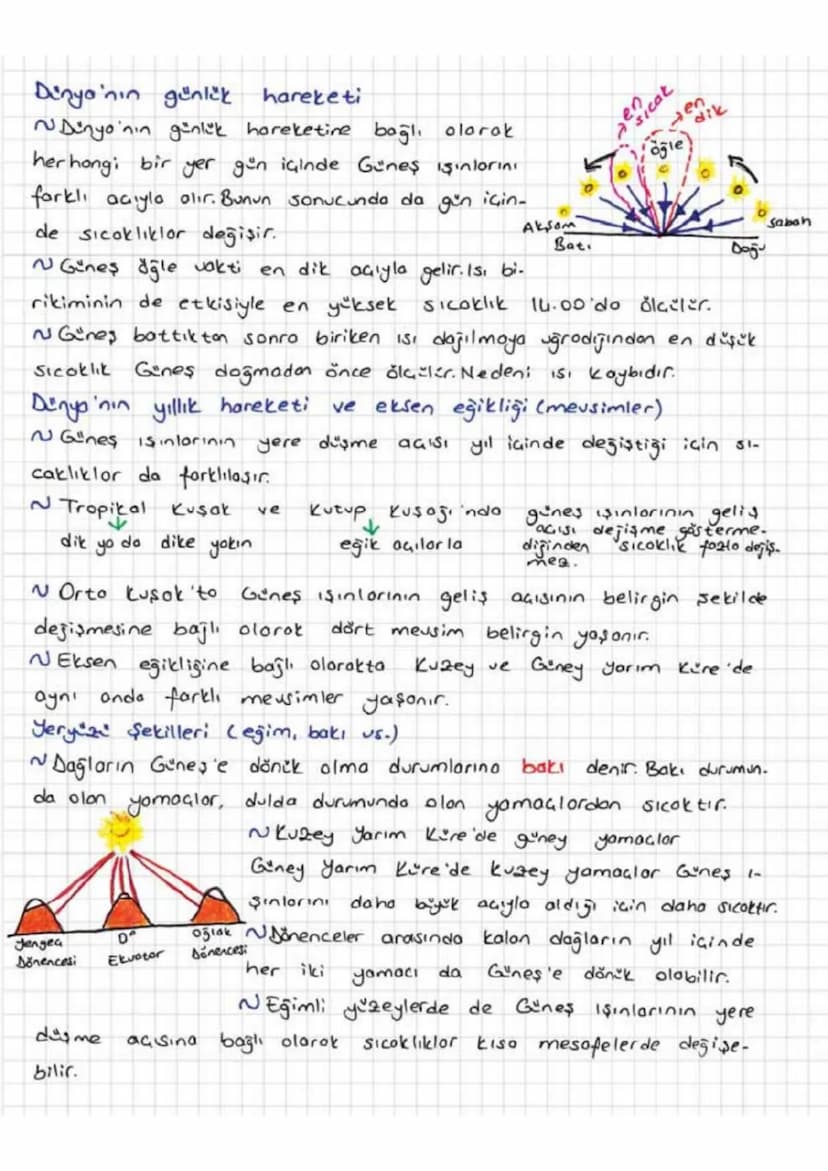 Dünya'nın günlük hareketi
~ Dünya'nın günlük hareketine bağlı olarak
herhangi bir yer gün içinde Güneş ışınlarını
farklı açıyla alır. Bunun sonucunda da gün için-
de sıcaklıklar değişir.
en sıcak
en dik
öğle
Akşam
sabah
Batı
Doğu
~ Güneş öğle vakti en dik açıyla gelir. Isı bi-
rikiminin de etkisiyle en yüksek sıcaklık 14.00'da ölçülür.
~ Güneş battıktan sonra biriken ısı dağılmaya uğradığından en düşük
sıcaklık Güneş doğmadan önce ölçülür. Nedeni ısı kaybıdır.
Dünya'nın yıllık hareketi ve eksen eğikliği (mevsimler)
~ Güneş ışınlarının yere düşme açısı yıl içinde değiştiği için sı-
caklıklar da farklılaşır.
~ Tropikal Kuşak ve Kutup Kuşağı'nda güneş ışınlarının geliş
açısı değişme gösterme-
dik ya da dike yakın eğik açılarla diğinden sıcaklık fazla değiş-
mez.
~ Orta Kuşak'ta Güneş ışınlarının geliş açısının belirgin şekilde
değişmesine bağlı olarak dört mevsim belirgin yaşanır.
~ Eksen eğikliğine bağlı olarakta Kuzey ve Güney Yarım Küre'de
aynı anda farklı mevsimler yaşanır.
Yeryüzü Şekilleri (eğim, bakı vs.)
~ Dağların Güneş'e dönük olma durumlarına bakı denir. Bakı durumun-
da olan yamaçlar, dulda durumunda olan yamaçlardan sıcaktır.
~ Kuzey Yarım Küre'de güney yamaçlar
Güney Yarım Küre'de kuzey yamaçlar Güneş ı-
şınlarını daha büyük açıyla aldığı için daha sıcaktır.
Yengeç Dönencesi
0° Ekvator
Oğlak Dönencesi
~ Dönenceler arasında kalan dağların yıl içinde
her iki yamacı da Güneş'e dönük olabilir.
~ Eğimli yüzeylerde de Güneş ışınlarının yere
düşme açısına bağlı olarak sıcaklıklar kısa mesafelerde değişe-
bilir.